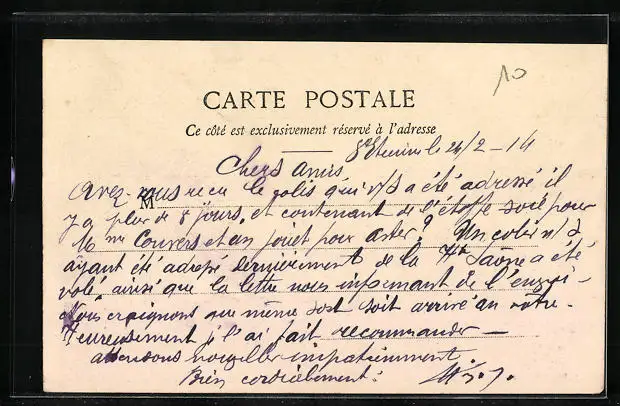 10
CARTE POSTALE
Ce côté est exclusivement réservé à l'adresse
St Etienne le 24/2 - 14
Chers amis
Avez-vous recu le colis qui v/s a été adressé il
y a plus de 8 jours, et contenant de l'étoffe soie pour
Mme Convers et un jouet pour ? Un colis n/s
ayant été adressé dernièrement de la Hte Saône a été
volé ainsi que la lettre nous informant de l'envoi -
Nous craignons que même sort soit arrivé au vôtre -
Heureusement je l'ai fait recommander -
attendons nouvelles impatiemment.
Bien cordialement :